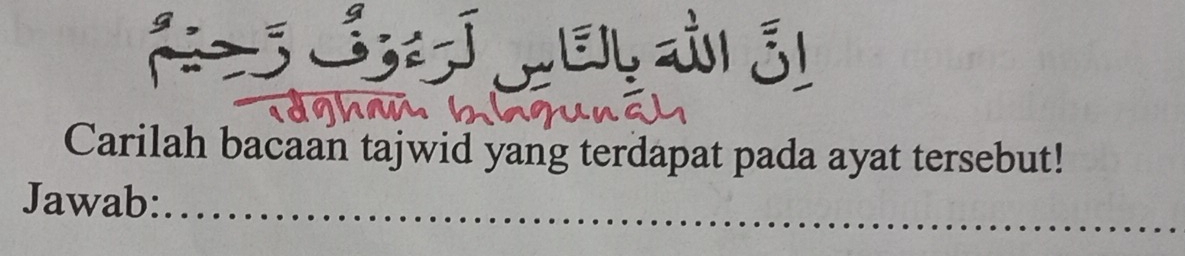 اِنَّ اللّٰهَ بِالنَّاسِ لَرَءُوْفٌ رَّحِيْمٌ
idgham bilagunah
Carilah bacaan tajwid yang terdapat pada ayat tersebut!
Jawab:......................................................................